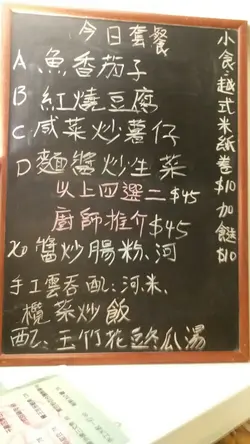 今日套餐
A 魚香茄子
B 紅燒豆腐
C 咸菜炒薯仔
D 麵醬炒生菜
以上四選二 $45
廚師推介 $45
XO 醬炒腸粉、河
手工雲吞配:河、米、
欖菜炒飯
配、玉竹花豆冬瓜湯
小食:越式米紙卷 $10 加餸 $10